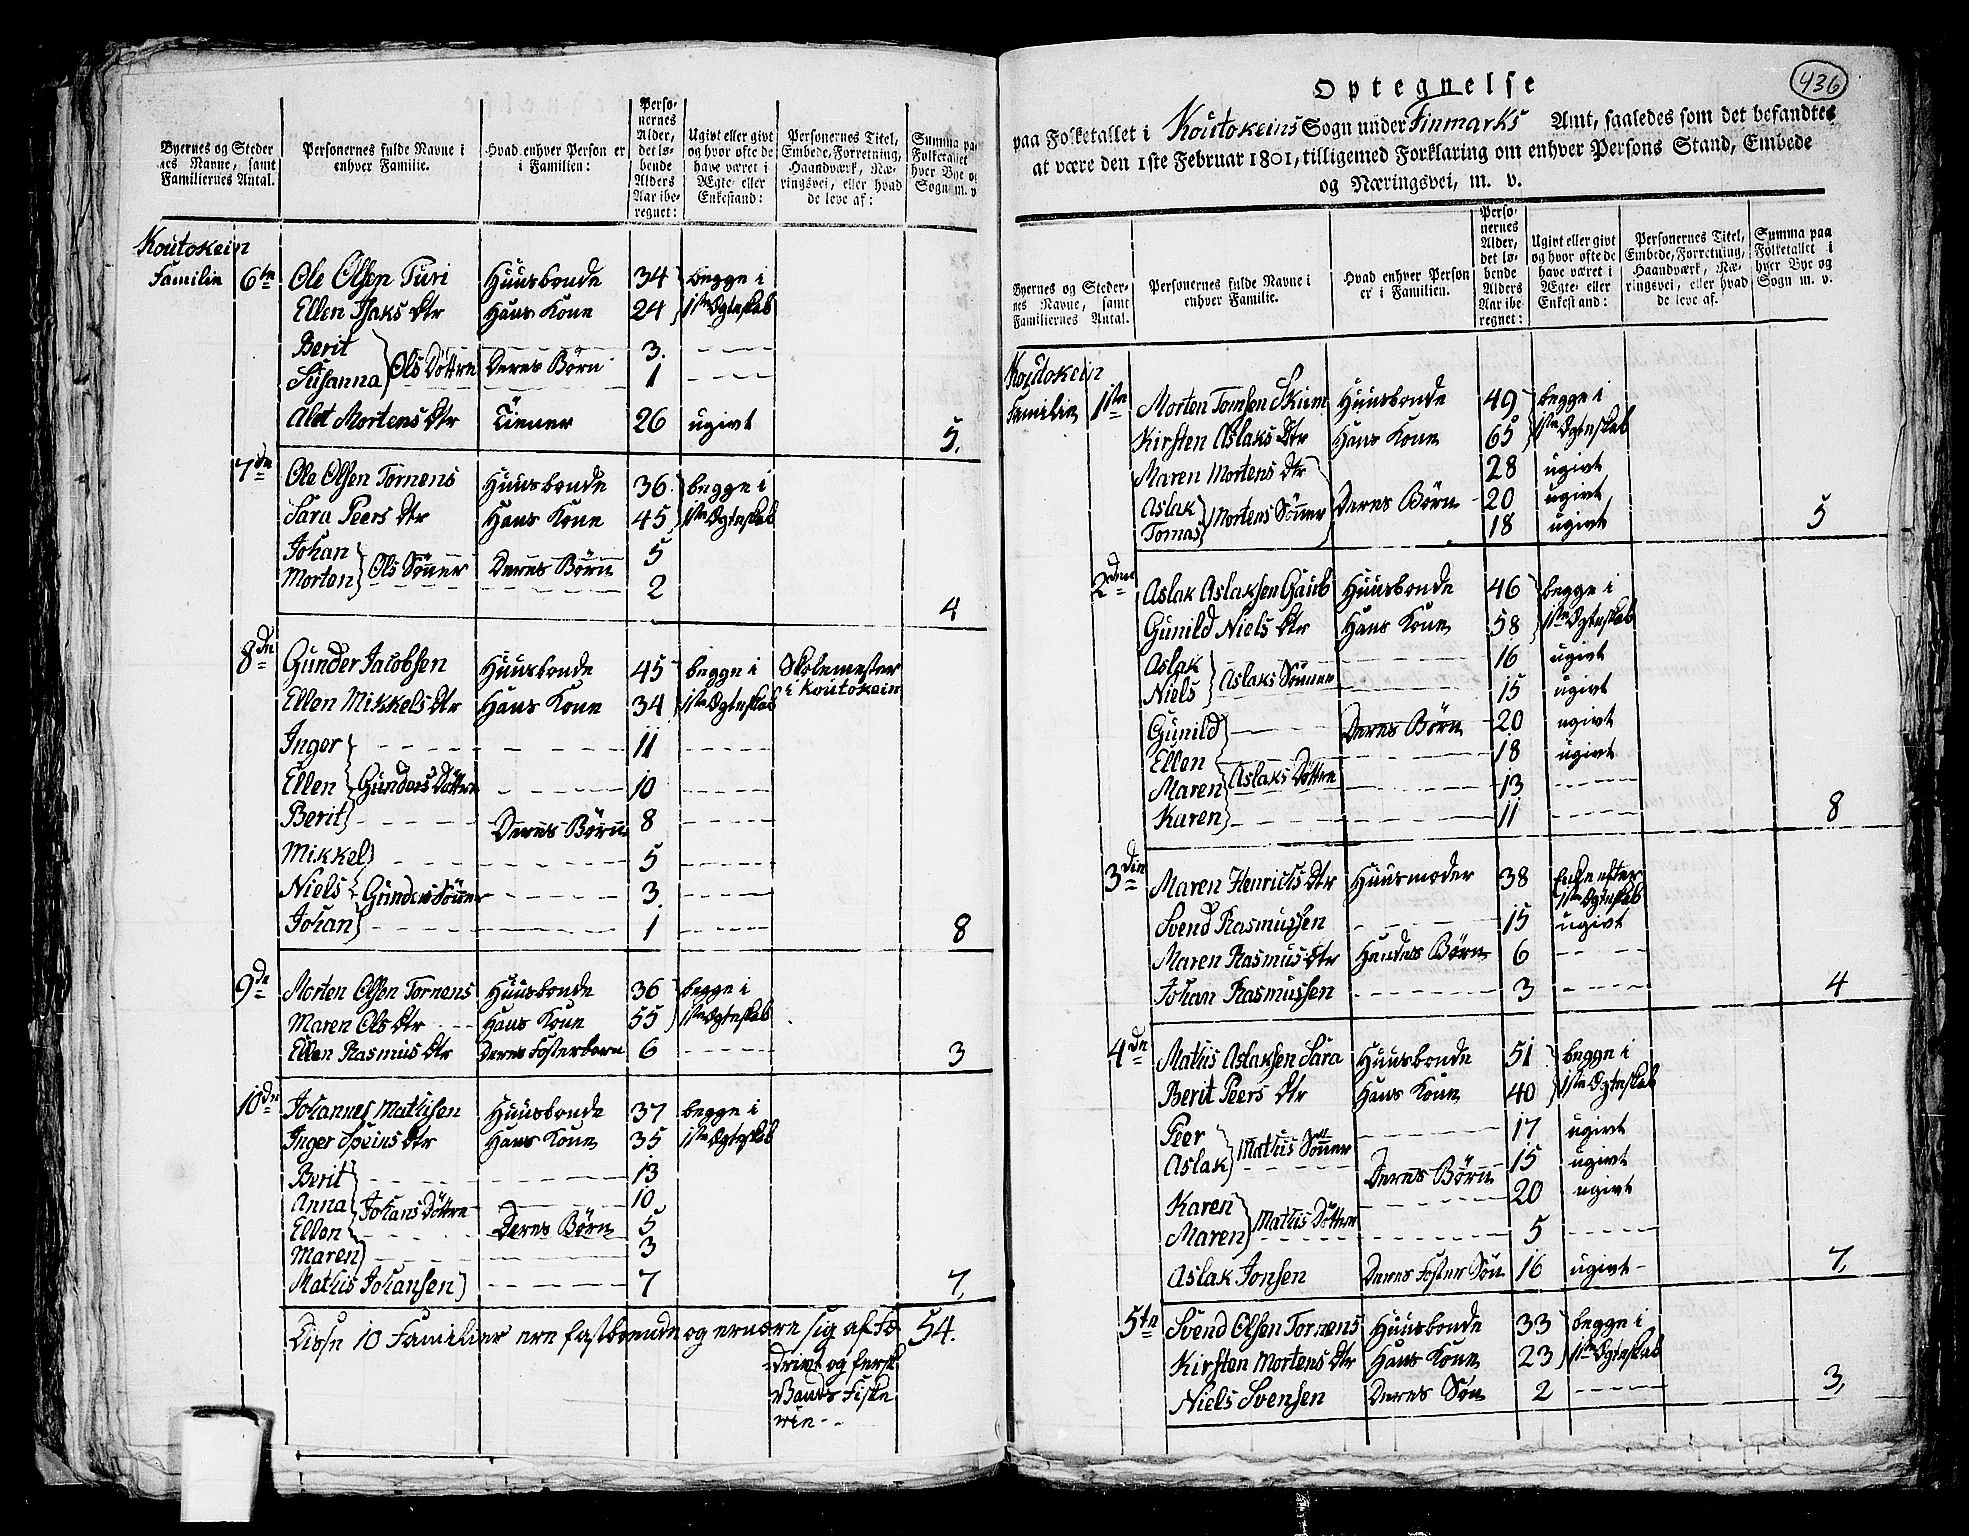 Byernes og Steder
nes Navne, samt
Familiernes Antal.
Personernes fulde Navne i
enhver Familie.
Hvad enhver Person er
i Familien:
Perso-
nernes
Alder,
det lø-
bende
Alders
Aar ibe-
regnet:
Ugivt eller givt
og hvor ofte de
have været i
Ægte- eller
Enkestand:
Personernes Titel,
Embede, Forretning,
Haandværk, Næ-
ringsvei, eller hvad
de leve af:
Summa paa
Folketallet i
hver Bye og
Sogn m. v.
Koutokein
Familie 6te Ole Olsen Turi Huusbonde 34 begge i
Ellen Isaks Dtr Hans Kone 24 1ste Ægteskab
Berit 3.
Susanna Ols Döttre Deres Börn 1
Alet Mortens Dtr Tiener 26 ugivt 5.
7de Ole Olsen Tornens Huusbonde 36 begge i
Sara Peers Dtr Hans Kone 45 1ste Ægteskab
Johan 5
Morten Ols Sönner Deres Börn 2
4
8de Gunder Jacobsen Huusbonde 45 begge i Skolemester
Ellen Mikkels Dtr Hans Kone 34 1ste Ægteskab i Koutokein
Inger 11
Ellen Gunders Döttre 10
Berit Deres Börn 8
Mikkel 5
Niels Gunders Sönner 3
Johan 1 8
9de Morten Olsen Tornens Huusbonde 36 begge i
Maren Ols Dtr Hans Kone 55 1ste Ægteskab
Ellen Rasmus Dtr Deres Fosterbarn 6 3
10de Johannes Mathisen Huusbonde 37 begge i
Inger Speins Dtr Hans Kone 35 1ste Ægteskab
Berit 13
Anna Johans Döttre 10
Ellen Deres Börn 5
Maren 3
Mathis Johansen 7 7,
Disse 10 Familier ere fastboende og ernære sig af Fæ 54.
drivt og fersk
Vands Fiske
rie
436
Optegnelse
paa Folketallet i Koutokeins Sogn under Finmarks Amt, saaledes som det befandtes
at være den 1ste Februar 1801, tilligemed Forklaring om enhver Persons Stand, Embede
og Næringsvei, m. v.
Byernes og Steder-
nes Navne, samt
Familiernes Antal.
Personernes fulde Navne i
enhver Familie.
Hvad enhver Person
er i Familien.
Perso-
nernes
Alder,
det lø-
bende
Alders
Aar ibe-
regnet:
Ugivt eller givt
og hvor ofte de
have været i
Ægte- eller
Enkestand:
Personernes Titel,
Embede, Forretning,
Haandværk, Næ-
ringsvei, eller hvad
de leve af.
Summa paa
Folketallet i
hver Bye og
Sogn m. v.
Koutokein
Familie 1ste Morten Tomsen Skum Huusbonde 49 begge i
Kirsten Aslaks Dtr Hans Kone 65 1ste Ægteskab
Maren Mortens Dtr 28 ugivt
Aslak Mortens Sönner Deres Börn 20 ugivt
Tomas 18 ugivt 5
2den Aslak Aslaksen Gaub Huusbonde 46 begge i
Gunild Niels Dtr Hans Kone 58 1ste Ægteskab
Aslak 16 ugivt
Niels Aslaks Sönner 15 ugivt
Gunild Deres Börn 20 ugivt
Ellen 18 ugivt
Maren Aslaks Döttre 13
Karen 11 8
3die Maren Henrichs Dtr Huusmoder 38 Enke efter
1ste Ægteskab
Svend Rasmussen 15 ugivt
Maren Rasmus Dtr Hendes Börn 6
Johan Rasmussen 3 4
4de Mathis Aslaksen Sara Huusbonde 51 begge i
Berit Peers Dtr Hans Kone 40 1ste Ægteskab
Peer 17 ugivt
Aslak Mathis Sönner Deres Börn 15 ugivt
Karen 20 ugivt
Maren Mathis Dötter 5
Aslak Jonsen Deres Foster Sön 16 ugivt 7,
5te Svend Olsen Tornens Huusbonde 33 begge i
Kirsten Mortens Dtr Hans Kone 23 1ste Ægteskab
Niels Svensen Deres Sön 2 3,